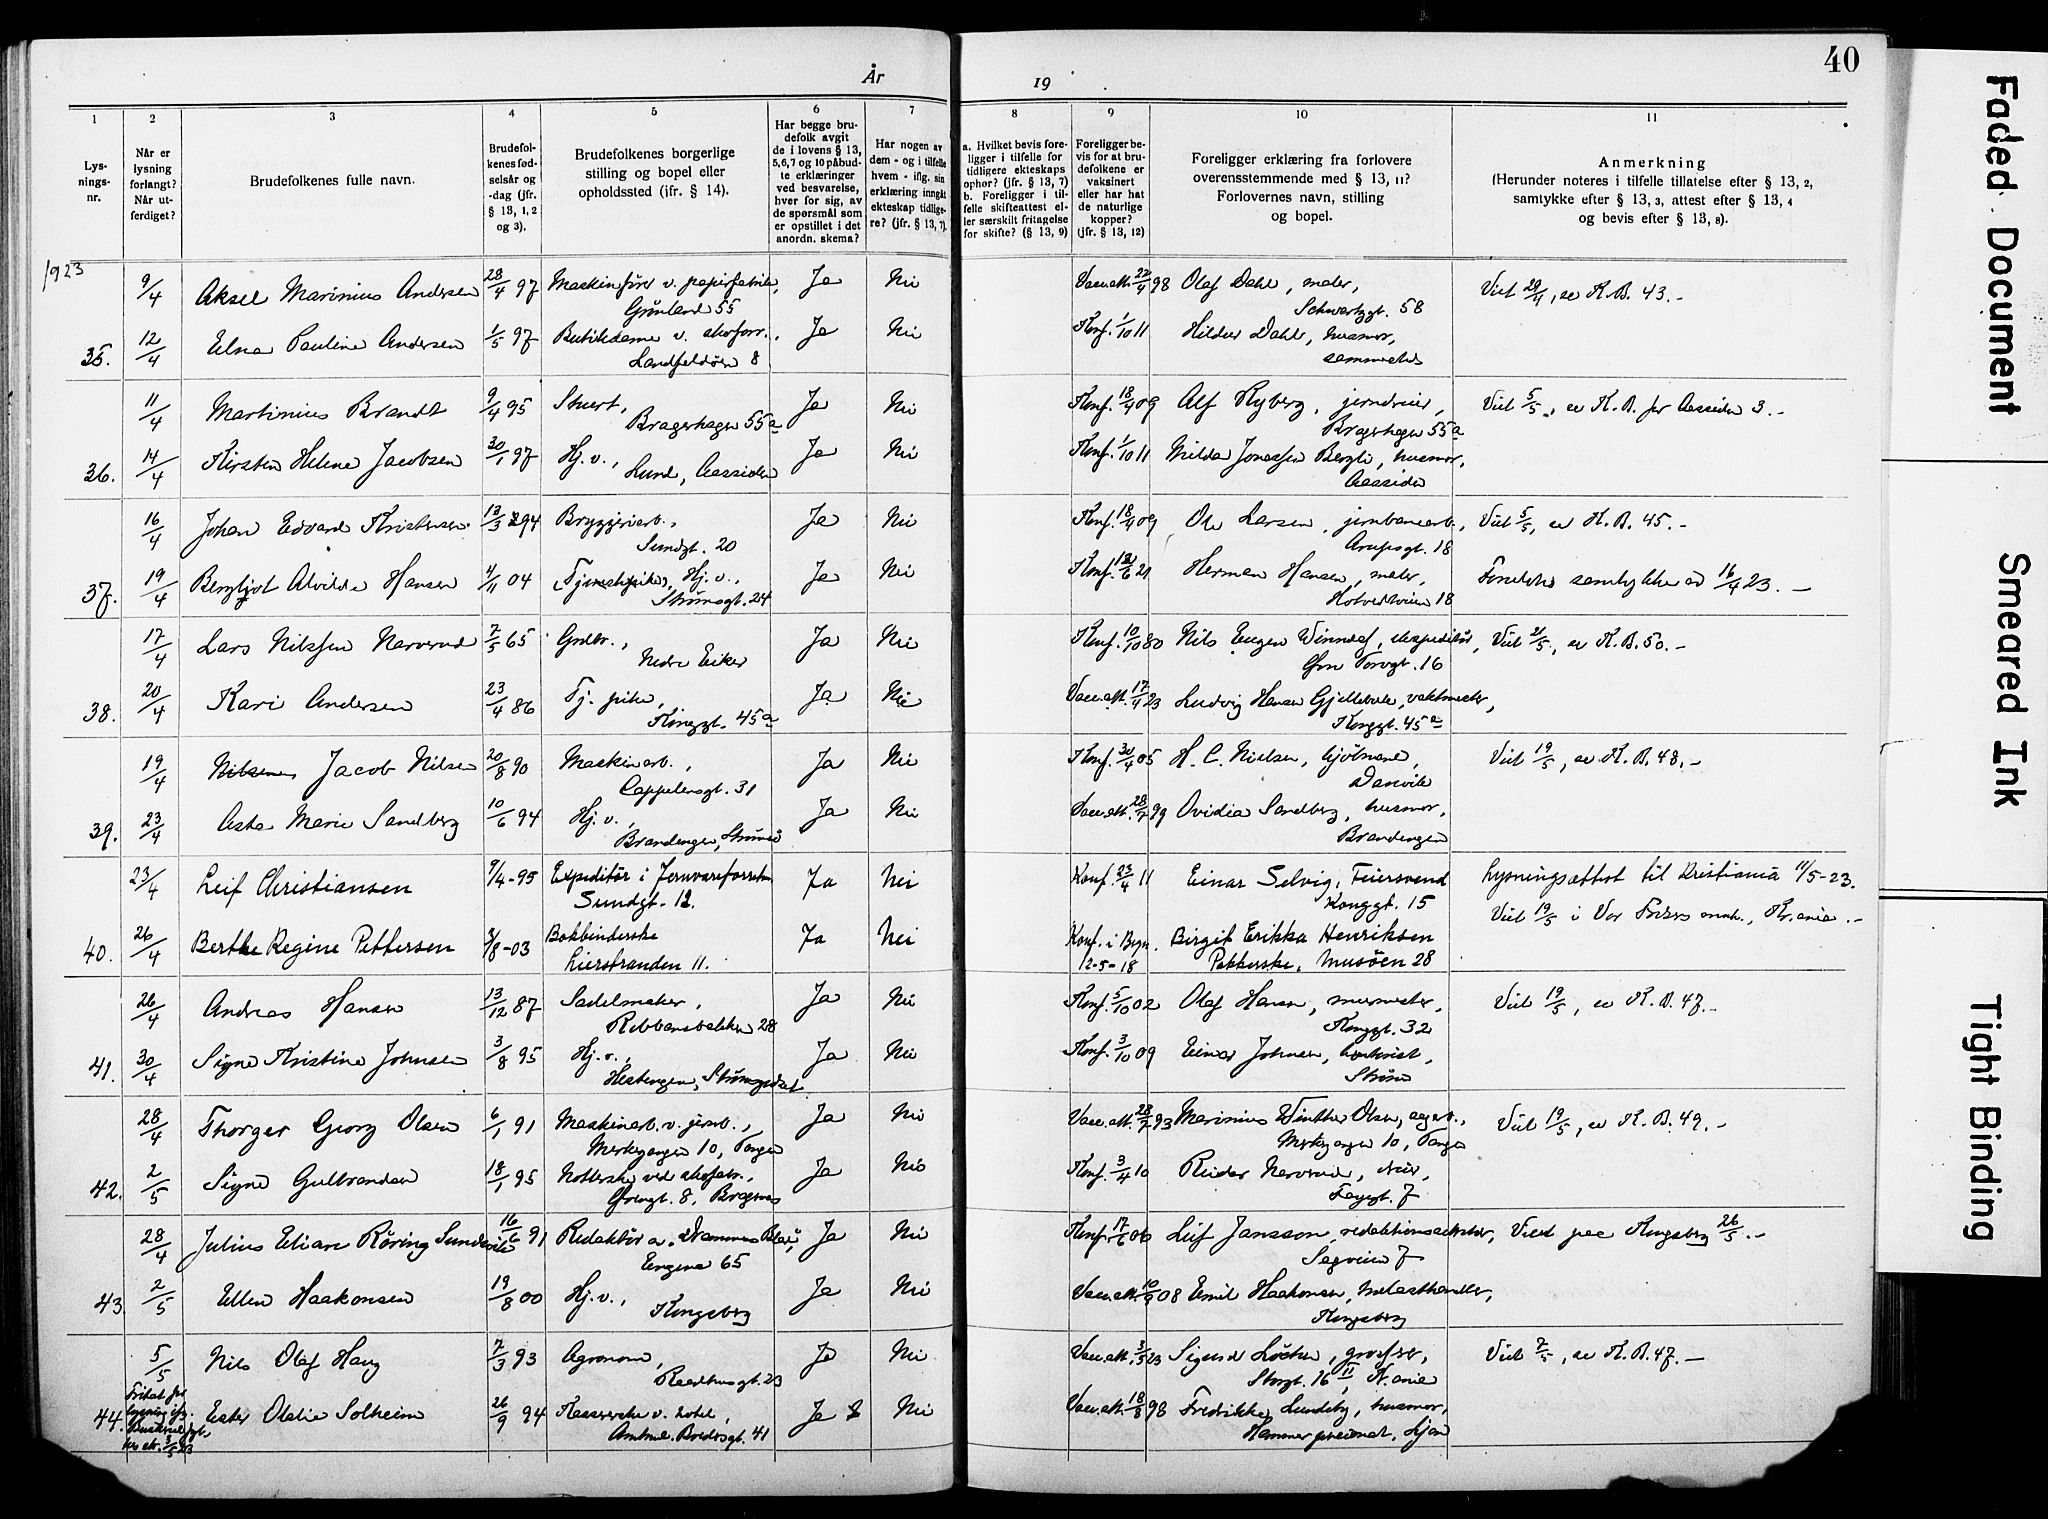 40
År 19
1 2 3 4 5 6 7 8 9 10 11
Lysnings-nr.
Når er lysning forlangt? Når utferdiget?
Brudefolkenes fulle navn.
Brudefolkenes fødselsår og -dag (jfr. § 13, 1, 2 og 3).
Brudefolkenes borgerlige stilling og bopel eller opholdssted (ifr. § 14).
Har begge brudefolk avgit de i lovens § 13, 5, 6, 7 og 10 påbudte erklæringer ved besvarelse, hver for sig, av de spørsmål som er opstillet i det anordn. skema?
Har nogen av dem - og i tilfelle hvem - iflg. sin erklæring inngått ekteskap tidligere? (jfr. § 13, 7).
a. Hvilket bevis foreligger i tilfelle for tidligere ekteskaps ophør? (jfr. § 13, 7)
b. Foreligger i tilfelle skifteattest eller særskilt fritagelse for skifte? (§ 13, 9)
Foreligger bevis for at brudefolkene er vaksinert eller har hat de naturlige kopper? (jfr. § 13, 12)
Foreligger erklæring fra forlovere overensstemmende med § 13, 11? Forlovernes navn, stilling og bopel.
Anmerkning
(Herunder noteres i tilfelle tillatelse efter § 13, 2, samtykke efter § 13, 3, attest efter § 13, 4 og bevis efter § 13, 8).
1923
9/4 Aksel Marinius Andersen 28/4 97 Maskinfører v. papirfabrik, Ja Nei Vacc.att. 22/4 98 Olaf Dahl, maler, Viet 29/4, se K.B. 43.-
Grønland 55 Schwartzgt. 58
35. 12/4 Elna Pauline Andersen 1/5 97 Butikdame v. skoforr., Ja Nei Konf. 1/10 11 Hildur Dahl, husmor,
Landfaldøen 8 sammested
11/4 Martinius Brandt 9/4 95 Stuert, Ja Nei Konf. 18/4 09 Alf Ryberg, jerndreier, Viet 5/5, se K.B. for Aassiden 3.-
Bragerhagen 55a Bragerhagen 55a
36. 14/4 Kirsten Helene Jacobsen 30/1 97 Hj.v., Ja Nei Konf. 1/10 11 Milda Jonassen Bergli, husmor,
Lund, Aassiden Aassiden
16/4 Johan Edvard Kristensen 13/3 94 Bryggeriarb., Ja Nei Konf. 18/4 09 Ole Larsen, jernbanearb., Viet 5/5, se K.B. 45.-
Sundgt. 20 Arupsgt. 18
37. 19/4 Bergljot Alvilde Hansen 4/11 04 Hj.v., Ja Nei Konf. 12/6 21 Herman Hansen, maler, Foreldres samtykke av 16/4 23.-
Strømsgt. 24 Hotvedtveien 18
17/4 Lars Nilssen Narverud 7/5 65 Grdbr., Ja Nei Konf. 10/10 80 Nils Eugen Winndal, ekspeditør, Viet 21/5, se K.B. 50.-
Nedre Eiker Øvre Torvgt. 16
38. 20/4 Kari Andersen 23/4 86 Tj. pike, Ja Nei Vacc.att. 17/4 23 Ludvig Hansen Gjellebæk, vaktmester,
Konggt. 45a Konggt. 45a
19/4 Jacob Nilsen 20/8 90 Maskinarb., Ja Nei Konf. 30/4 05 H. C. Nielsen, Viet 19/5, se K.B. 48.-
Cappelensgt. 31 Danvik
39. 23/4 Asta Marie Sandberg 10/6 94 Hj.v., Ja Nei Vacc.att. 28/7 99 Ovidia Sandberg, husmor,
Brandengen, Strømsø Brandengen
23/4 Leif Christiansen 9/4-95 Expeditör i Jernvareforretn. Ja Nei Konf. 23/4 11 Einar Selvig, Feiersvend Lysningsattest til Kristiania 11/5-23.
Sundgt. 12. Konggt. 15 Viet 19/5 i Vor Frelsers menh., Kr.ania.-
40. 26/4 Berthe Regine Pettersen 3/8-03 Bokbinderske Ja Nei Konf. i Brgn. Birgit Erikka Henriksen
Lierstranden 11. 12-5-18 Pakkerske, Musöen 28
26/4 Andreas Hansen 13/12 87 Sadelmaker, Ja Nei Konf. 5/10 02 Olaf Hansen, murmester, Viet 19/5, se K.B. 47.-
Ribbansbakken 28 Konggt. 32
41. 30/4 Signe Kristine Johnsen 3/8 95 Hj.v., Ja Nei Konf. 3/10 09 Einar Johnsen, kontorist,
Hestengen, Strømsgodset Strømsø
28/4 Thorger Georg Olsen 6/1 91 Maskinarb. v. jernb., Ja Nei Vacc.att. 28/7 93 Marinius Winther Olsen, sagarb., Viet 19/5, se K.B. 49.-
Merkegangen 10, Tangen Merkegangen 10, Tangen
42. 2/5 Signe Gulbrandsen 18/1 95 Notterske ved skofabr., Ja Nei Konf. 3/4 10 Reidar Narverud, dreier,
Grevgt. 8, Bragernes Fayegt. 7
28/4 Julius Eliare Röring Sundsvik 16/6 91 Redaktør av "Drammens Blad", Ja Nei Konf. 17/6 06 Leif Jansson, redaktionssekretær, Viet paa Kongsberg 26/5.-
Engene 65 Sagveien 7
43. 2/5 Ellen Haakonsen 19/8 00 Hj.v., Ja Nei Vacc.att. 10/9 08 Emil Haakonsen, melasthandler,
Kongsberg Kongsberg
5/5 Nils Olaf Haug 7/3 93 Agronom, Ja Nei Vacc.att. 3/5 23 Sigurd Löchen, grosserer, Viet 7/5, se K.B. 47.-
Raadhusgt. 23 Storgt. 16 II, Kr.ania
44. Fritat for lysning iflg. Buskerud fylkes skr. 3/5 23 Ester Otalie Solheim 26/9 94 Kassererske v. hotel, Ja Nei Vacc.att. 18/8 98 Fredrikke Lundeby, husmor,
Amtmd. Bloms gt. 41 Hammer pensionat, Ljan
Faded Document
Smeared Ink
Tight Binding